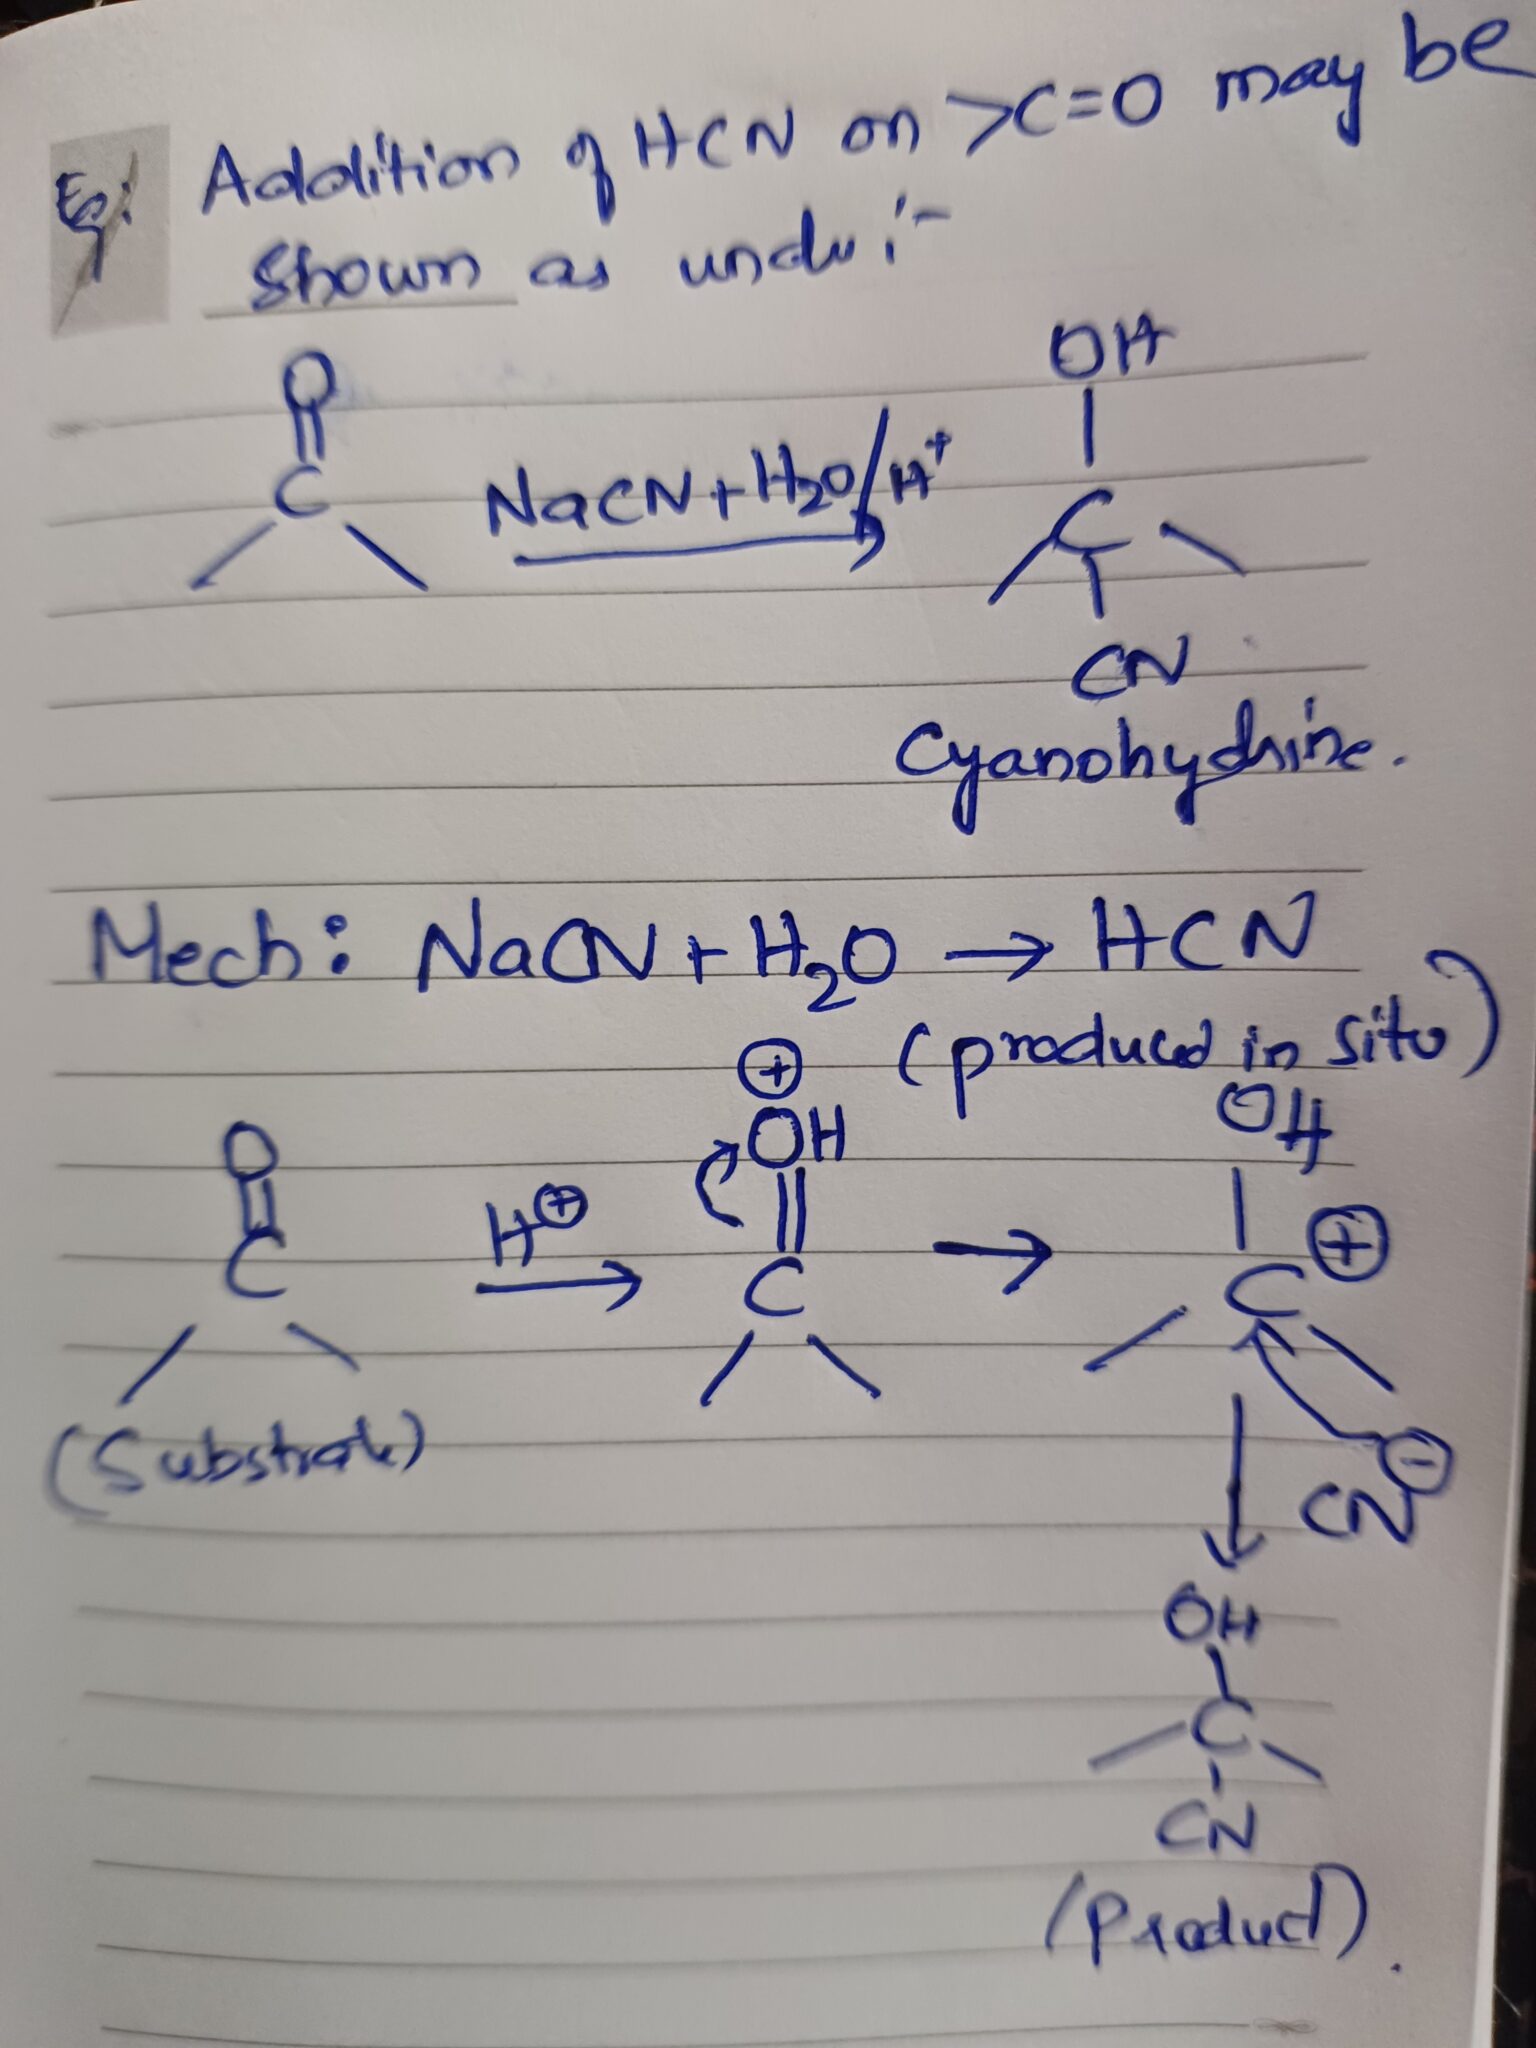 Eg: Addition of HCN on >C=O may be
shown as under :-
O
||
C
NaCN + H2O/H+
OH
|
C
|
CN
Cyanohydrine.
Mech: NaCN + H2O → HCN
(produced in situ)
O
||
C
(Substrate)
H⊕
→
⊕
OH
||
C
→
OH
|
C ⊕
⊖
CN
↓
OH
|
C
|
CN
(Product).